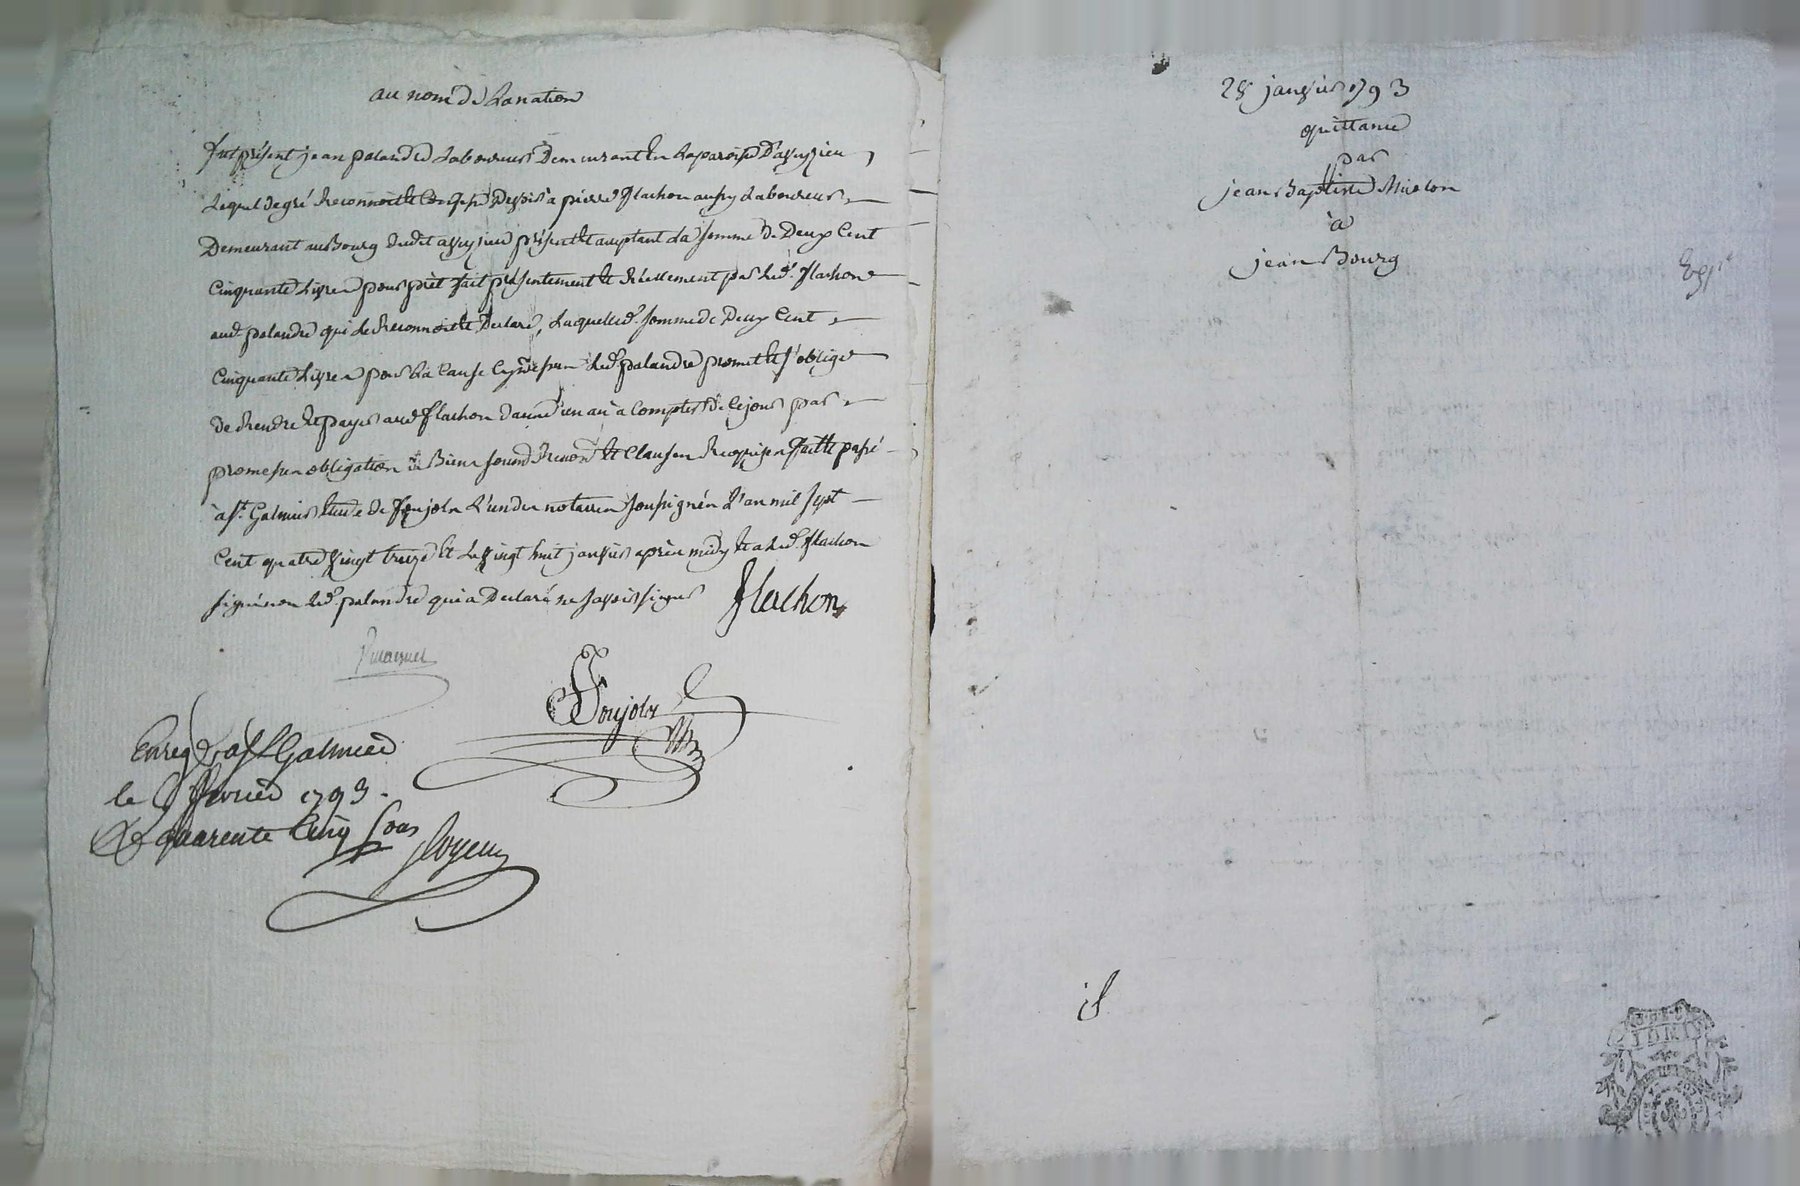 au nom de la nation
fut présent jean palandre Laboureur Demeurant En la paroisse D'aveyzieu,
Lequel de gré Reconnoit devoir à pierre flachon aussy Laboureur
Demeurant au Bourg dudit aveyzieu présent et acceptant La somme de Deux Cent
Cinquante Livres pour prêt fait présentement et réellement par Led. flachon
aud. palandre qui Le Reconnoit et Declare, Laquelle d. somme de Deux Cent
Cinquante Livres pour La Cause Led. palandre promet et s'oblige
de Rendre et payer aud. flachon dans d'un an à Compter de Ce jour par
promesses obligation de Biens soum. Renon. et Clauses Requises faitte passé
à St. Galmier Etude de Foujols L'un des notaires soussignés L'an mil sept
Cent quatre vingt treize et Le vingt huit janvier après midy Et a Led. flachon
signé non Led. palandre qui a Declaré ne savoir signer flachon
Foujols
Enreg. à St Galmier
le février 1793.
R quarante Cinq sous
28 janvier 1793
quittance
par
jean Baptiste
à
jean Bourg
Exp.e